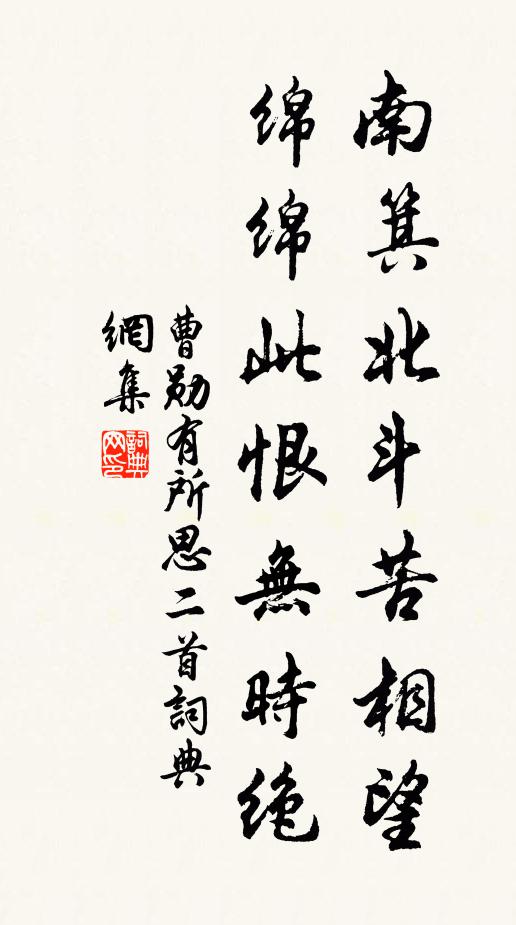 南箕北斗苦相望
绵绵此恨無時绝
曹勋有所思二首詞典
網集
詞典网印